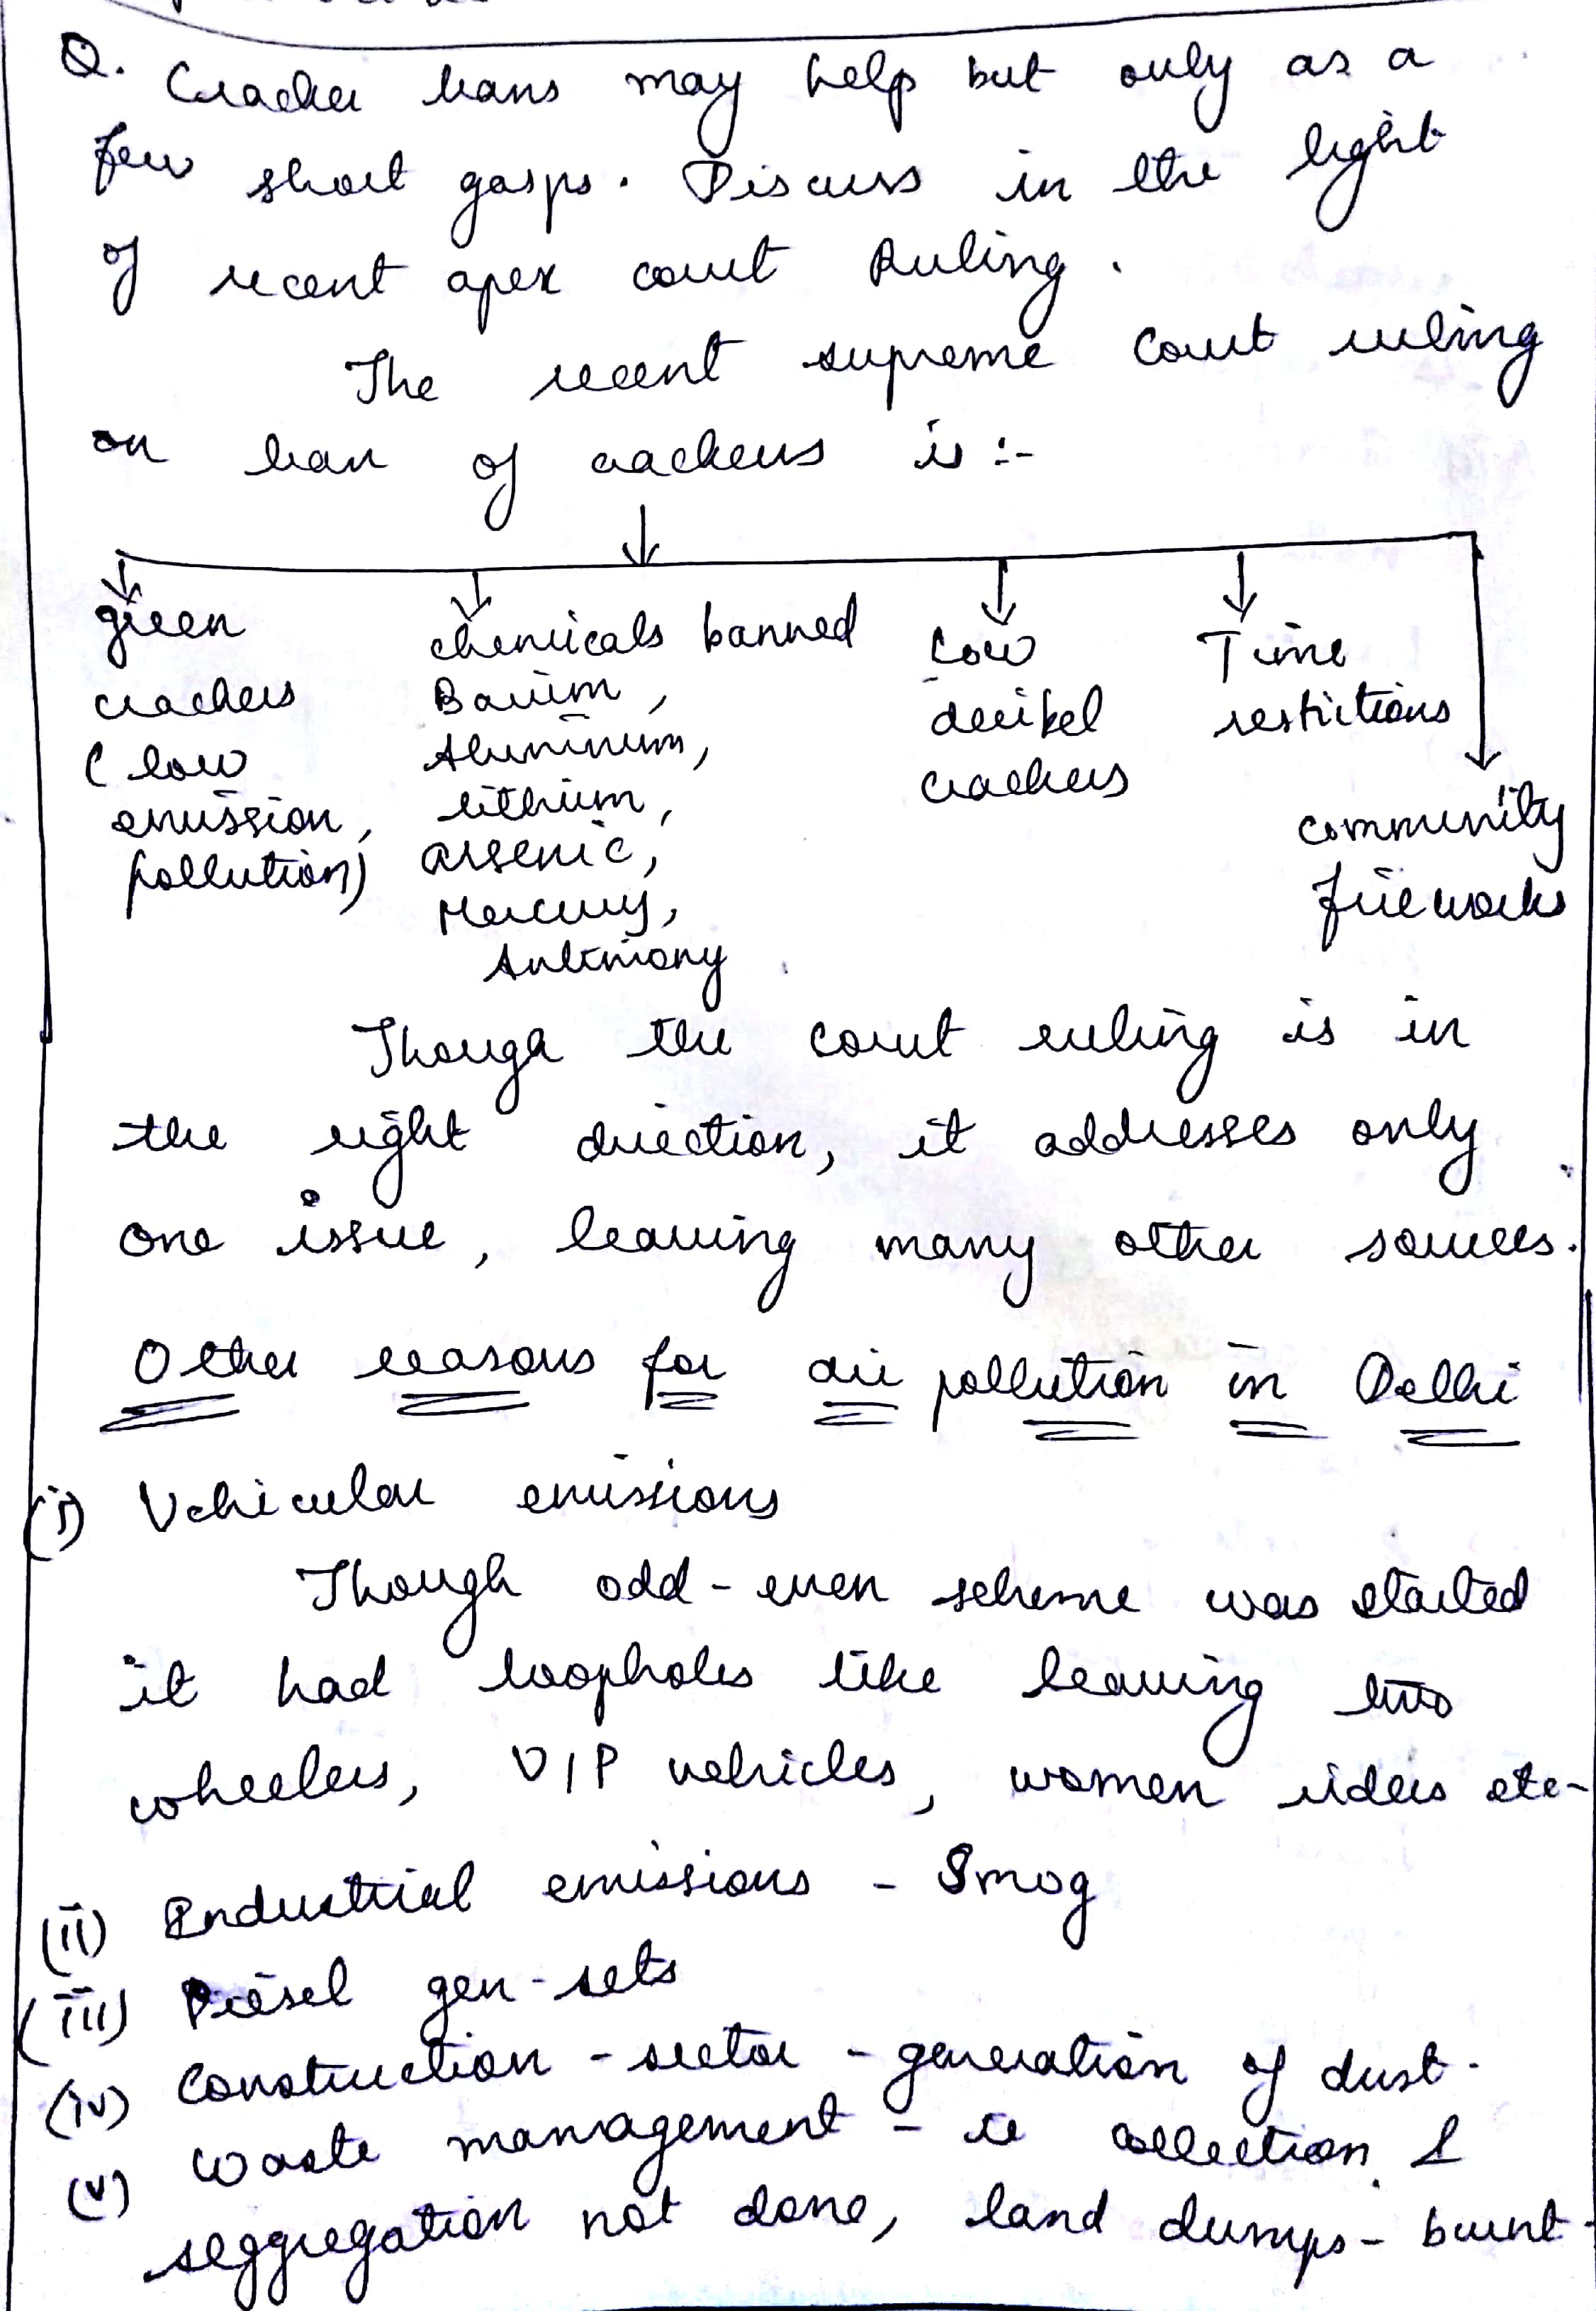 Q. Cracker bans may help but only as a
few short gasps. Discuss in the light
of recent apex court Ruling.
The recent supreme court ruling
on ban of crackers is :-
green
crackers
(low
emission,
pollution)
chemicals banned
Barium,
Aluminum,
lithium,
arsenic,
Mercury,
Antimony
Low
decibel
crackers
Time
restrictions
community
fireworks
Though the court ruling is in
the right direction, it addresses only
one issue, leaving many other sources.
Other reasons for air pollution in Delhi
(i) Vehicular emissions
Though odd-even scheme was started
it had loopholes like leaving two
wheelers, VIP vehicles, women riders etc-
(ii) Industrial emissions - Smog
(iii) Diesel gen-sets
(iv) Construction - sector - generation of dust.
(v) Waste management - ie collection &
seggregation not done, land dumps - burnt.